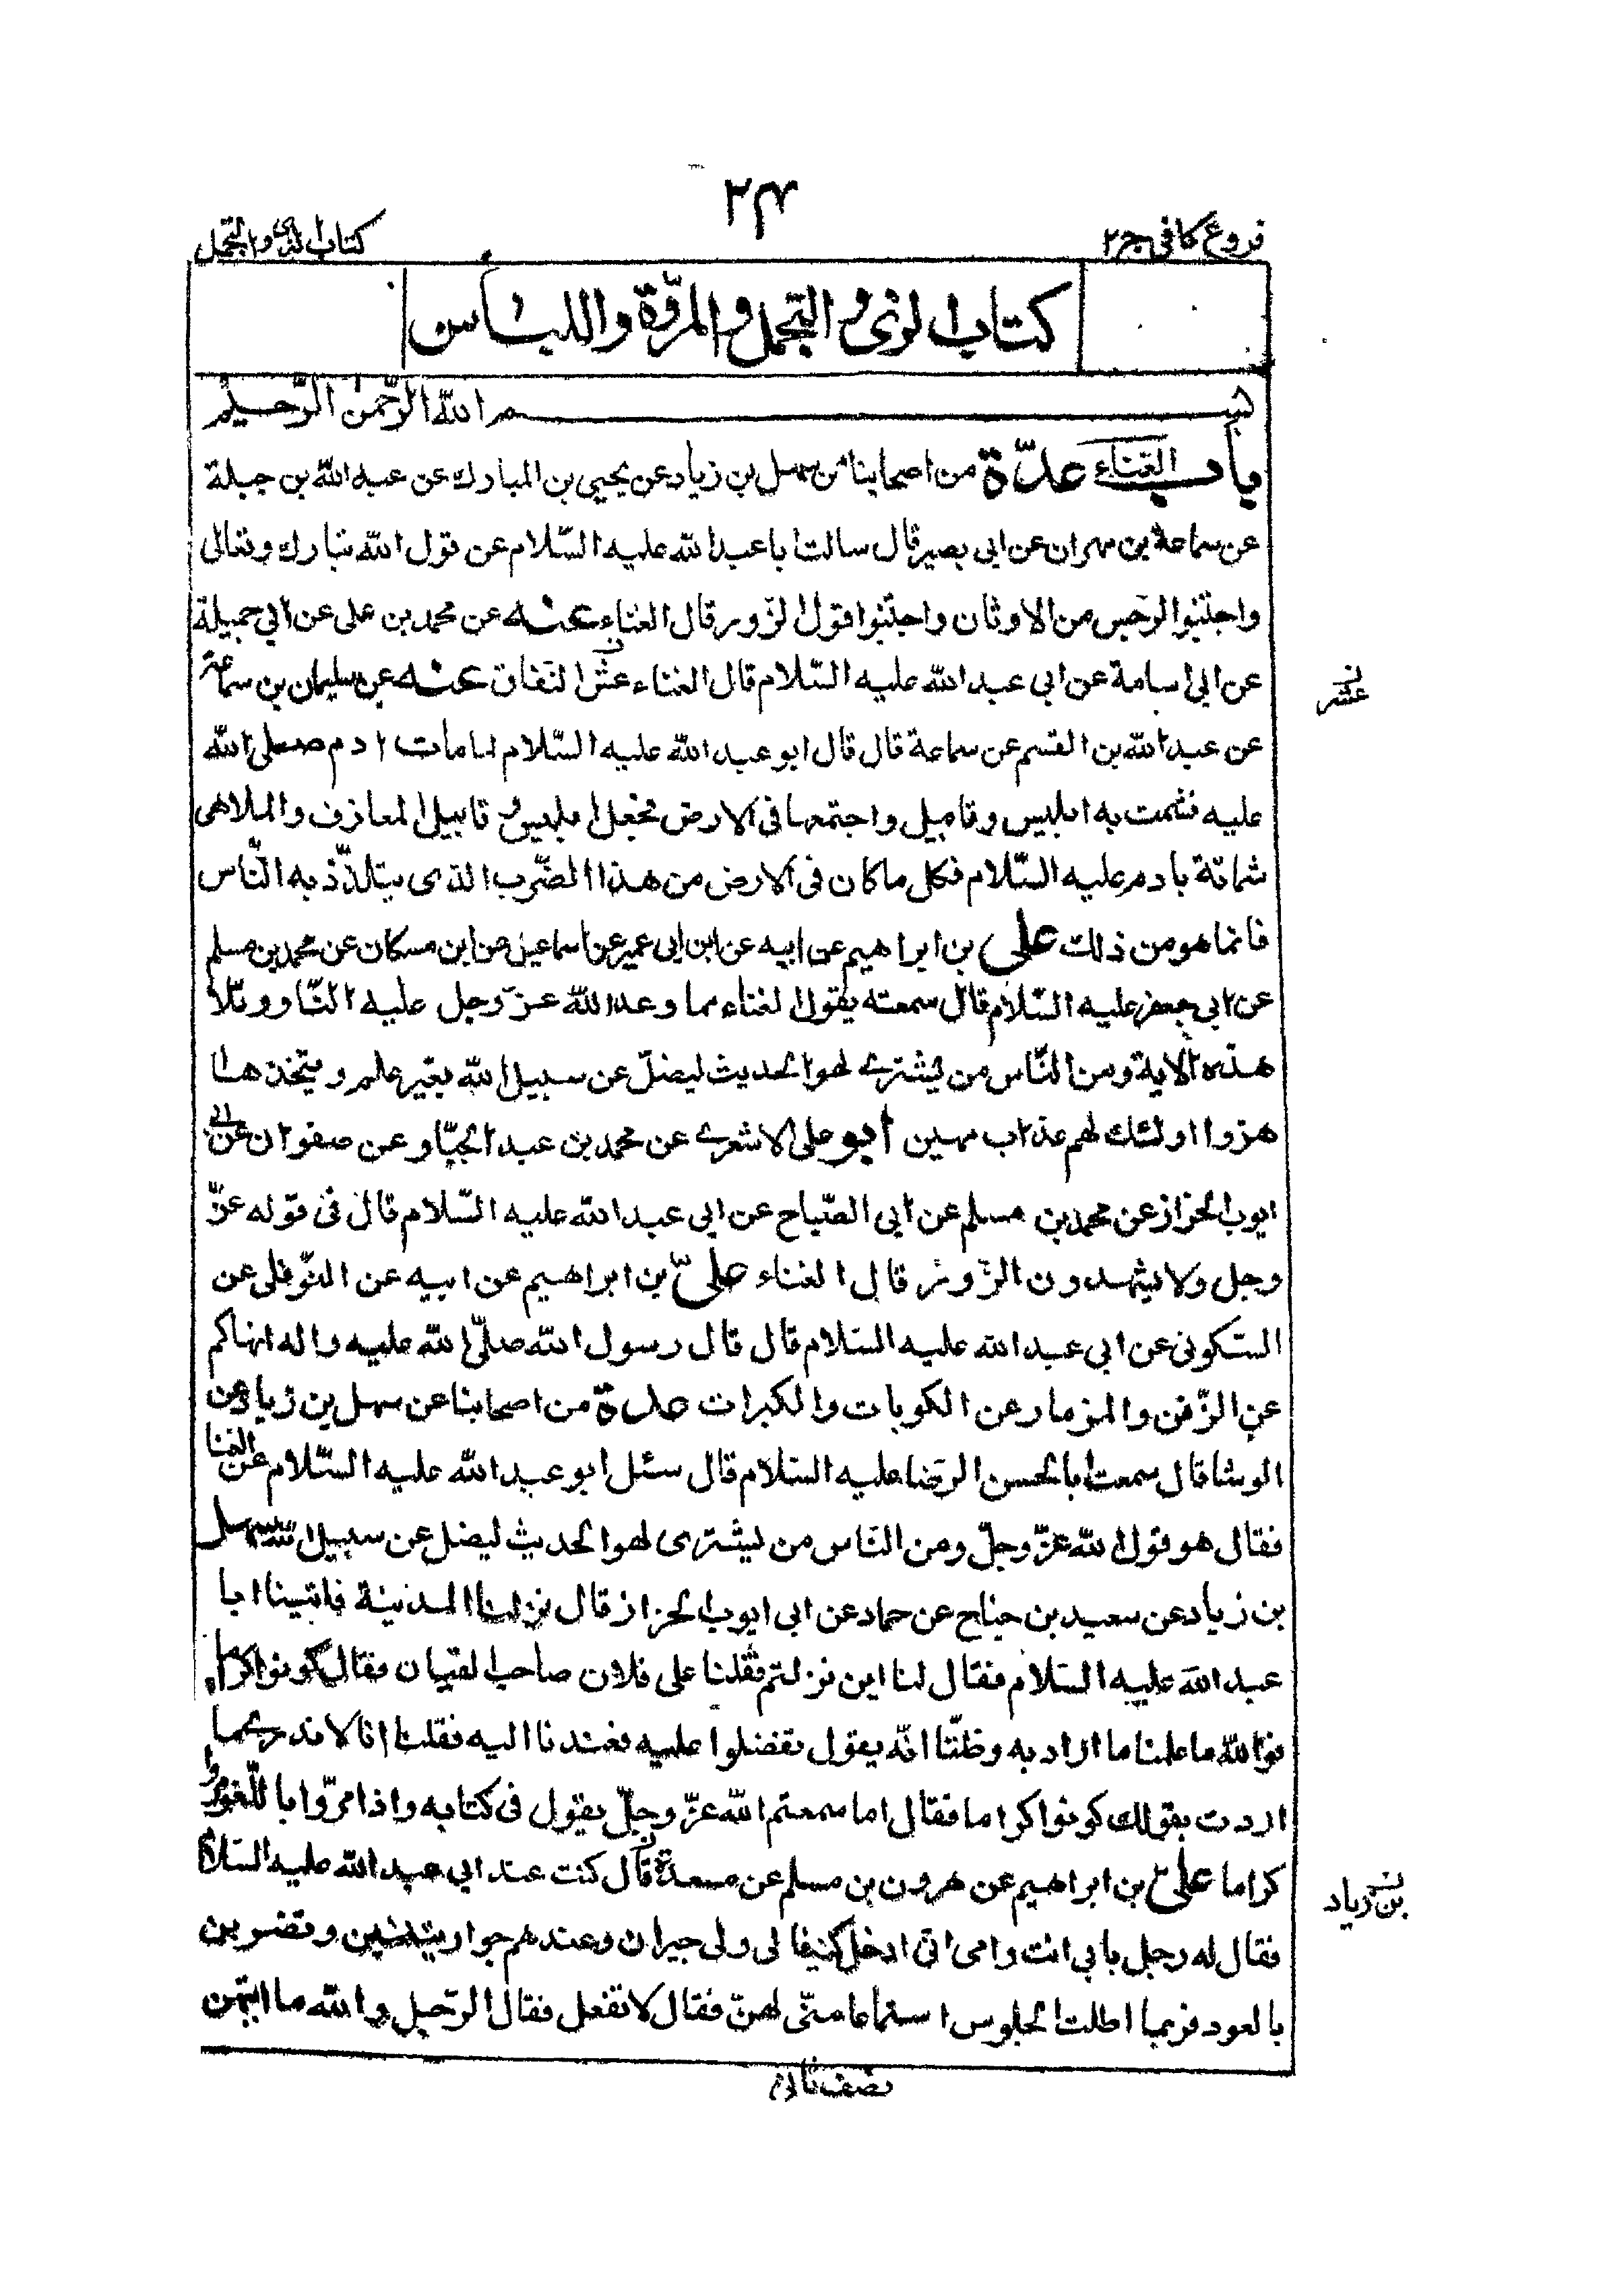 ٢٣
فروع كافى ج ٢
كتاب الزى والتجمل
كتاب الزى والتجمل والمروّة واللباس
بسم الله الرّحمن الرّحيم
باب الغناء عدّة من اصحابنا عن سهل بن زياد عن يحيى بن المبارك عن عبد الله بن جبلة
عن سماعة بن مهران عن ابى بصير قال سالت ابا عبد الله عليه السّلام عن قول الله تبارك وتعالى
واجتنبوا الرجس من الاوثان واجتنبوا قول الزّور قال الغناء عنه عن محمد بن على عن ابي جميلة
عن ابى اسامة عن ابي عبد الله عليه السّلام قال الغناء عشّ النفاق عنه عن سليمان بن سماعة
عشر
عن عبد الله بن القسم عن سماعة قال قال ابو عبد الله عليه السّلام لما مات ادم صلى الله
عليه شمت به ابليس وقابيل واجتمعا فى الارض فجعل ابليس وقابيل المعازف والملاهى
شماتة بادم عليه السّلام فكل ما كان فى الارض من هذا الضّرب الذى يتلذّذ به النّاس
فانما هو من ذلك على بن ابراهيم عن ابيه عن ابن ابى عمير عن اسماعيل عن ابن مسكان عن محمد بن مسلم
عن ابي جعفر عليه السّلام قال سمعته يقول الغناء مما وعد الله عزّ وجل عليه النّار وتلا
هذه الاية ومن النّاس من يشترى لهو الحديث ليضلّ عن سبيل الله بغير علم ويتخذها
هزوا اولئك لهم عذاب مهين ابو على الاشعرى عن محمد بن عبد الجبّار عن صفوان عن ابى
ايوب الخزاز عن محمد بن مسلم عن ابى الصّباح عن ابى عبد الله عليه السّلام قال فى قوله عزّ
وجل ولا يشهدون الزّور قال الغناء علىّ بن ابراهيم عن ابيه عن النّوفلى عن
السّكونى عن ابي عبد الله عليه السّلام قال قال رسول الله صلّى الله عليه واله انهاكم
عن الزّفن والمزمار وعن الكوبات والكبرات عدة من اصحابنا عن سهل بن زياد عن
الوشا قال سمعت ابا الحسن الرضا عليه السّلام قال سئل ابو عبد الله عليه السّلام عن الغنا
فقال هو قول الله عزّ وجلّ ومن النّاس من يشترى لهو الحديث ليضل عن سبيل الله سهل
بن زياد عن سعيد بن جناح عن حماد عن ابى ايوب الخزاز قال نزلنا المدينة فاتينا ابا
عبد الله عليه السّلام فقال لنا اين نزلتم فقلنا على فلان صاحب القيان فقال كونوا كراما
فوالله ما علمنا ما اراد به وظنّنا انّه يقول تفضلوا عليه فعدنا اليه فقلنا انا لا ندرى ما
اردت بقولك كونوا كراما فقال اما سمعتم الله عزّ وجلّ يقول فى كتابه واذا مرّوا باللّغو مروا
كراما علىّ بن ابراهيم عن هرون بن مسلم عن مسعدة قال كنت عند ابي عبد الله عليه السّلام
بن زياد
فقال له رجل بابي انت وامى انى ادخل كنيفا لى ولى جيران وعندهم جوار يتغنين ويضربن
بالعود فربما اطلت الجلوس استماعا منّى لهنّ فقال لا تفعل فقال الرّجل والله ما اتيتهن
نصف ثانى